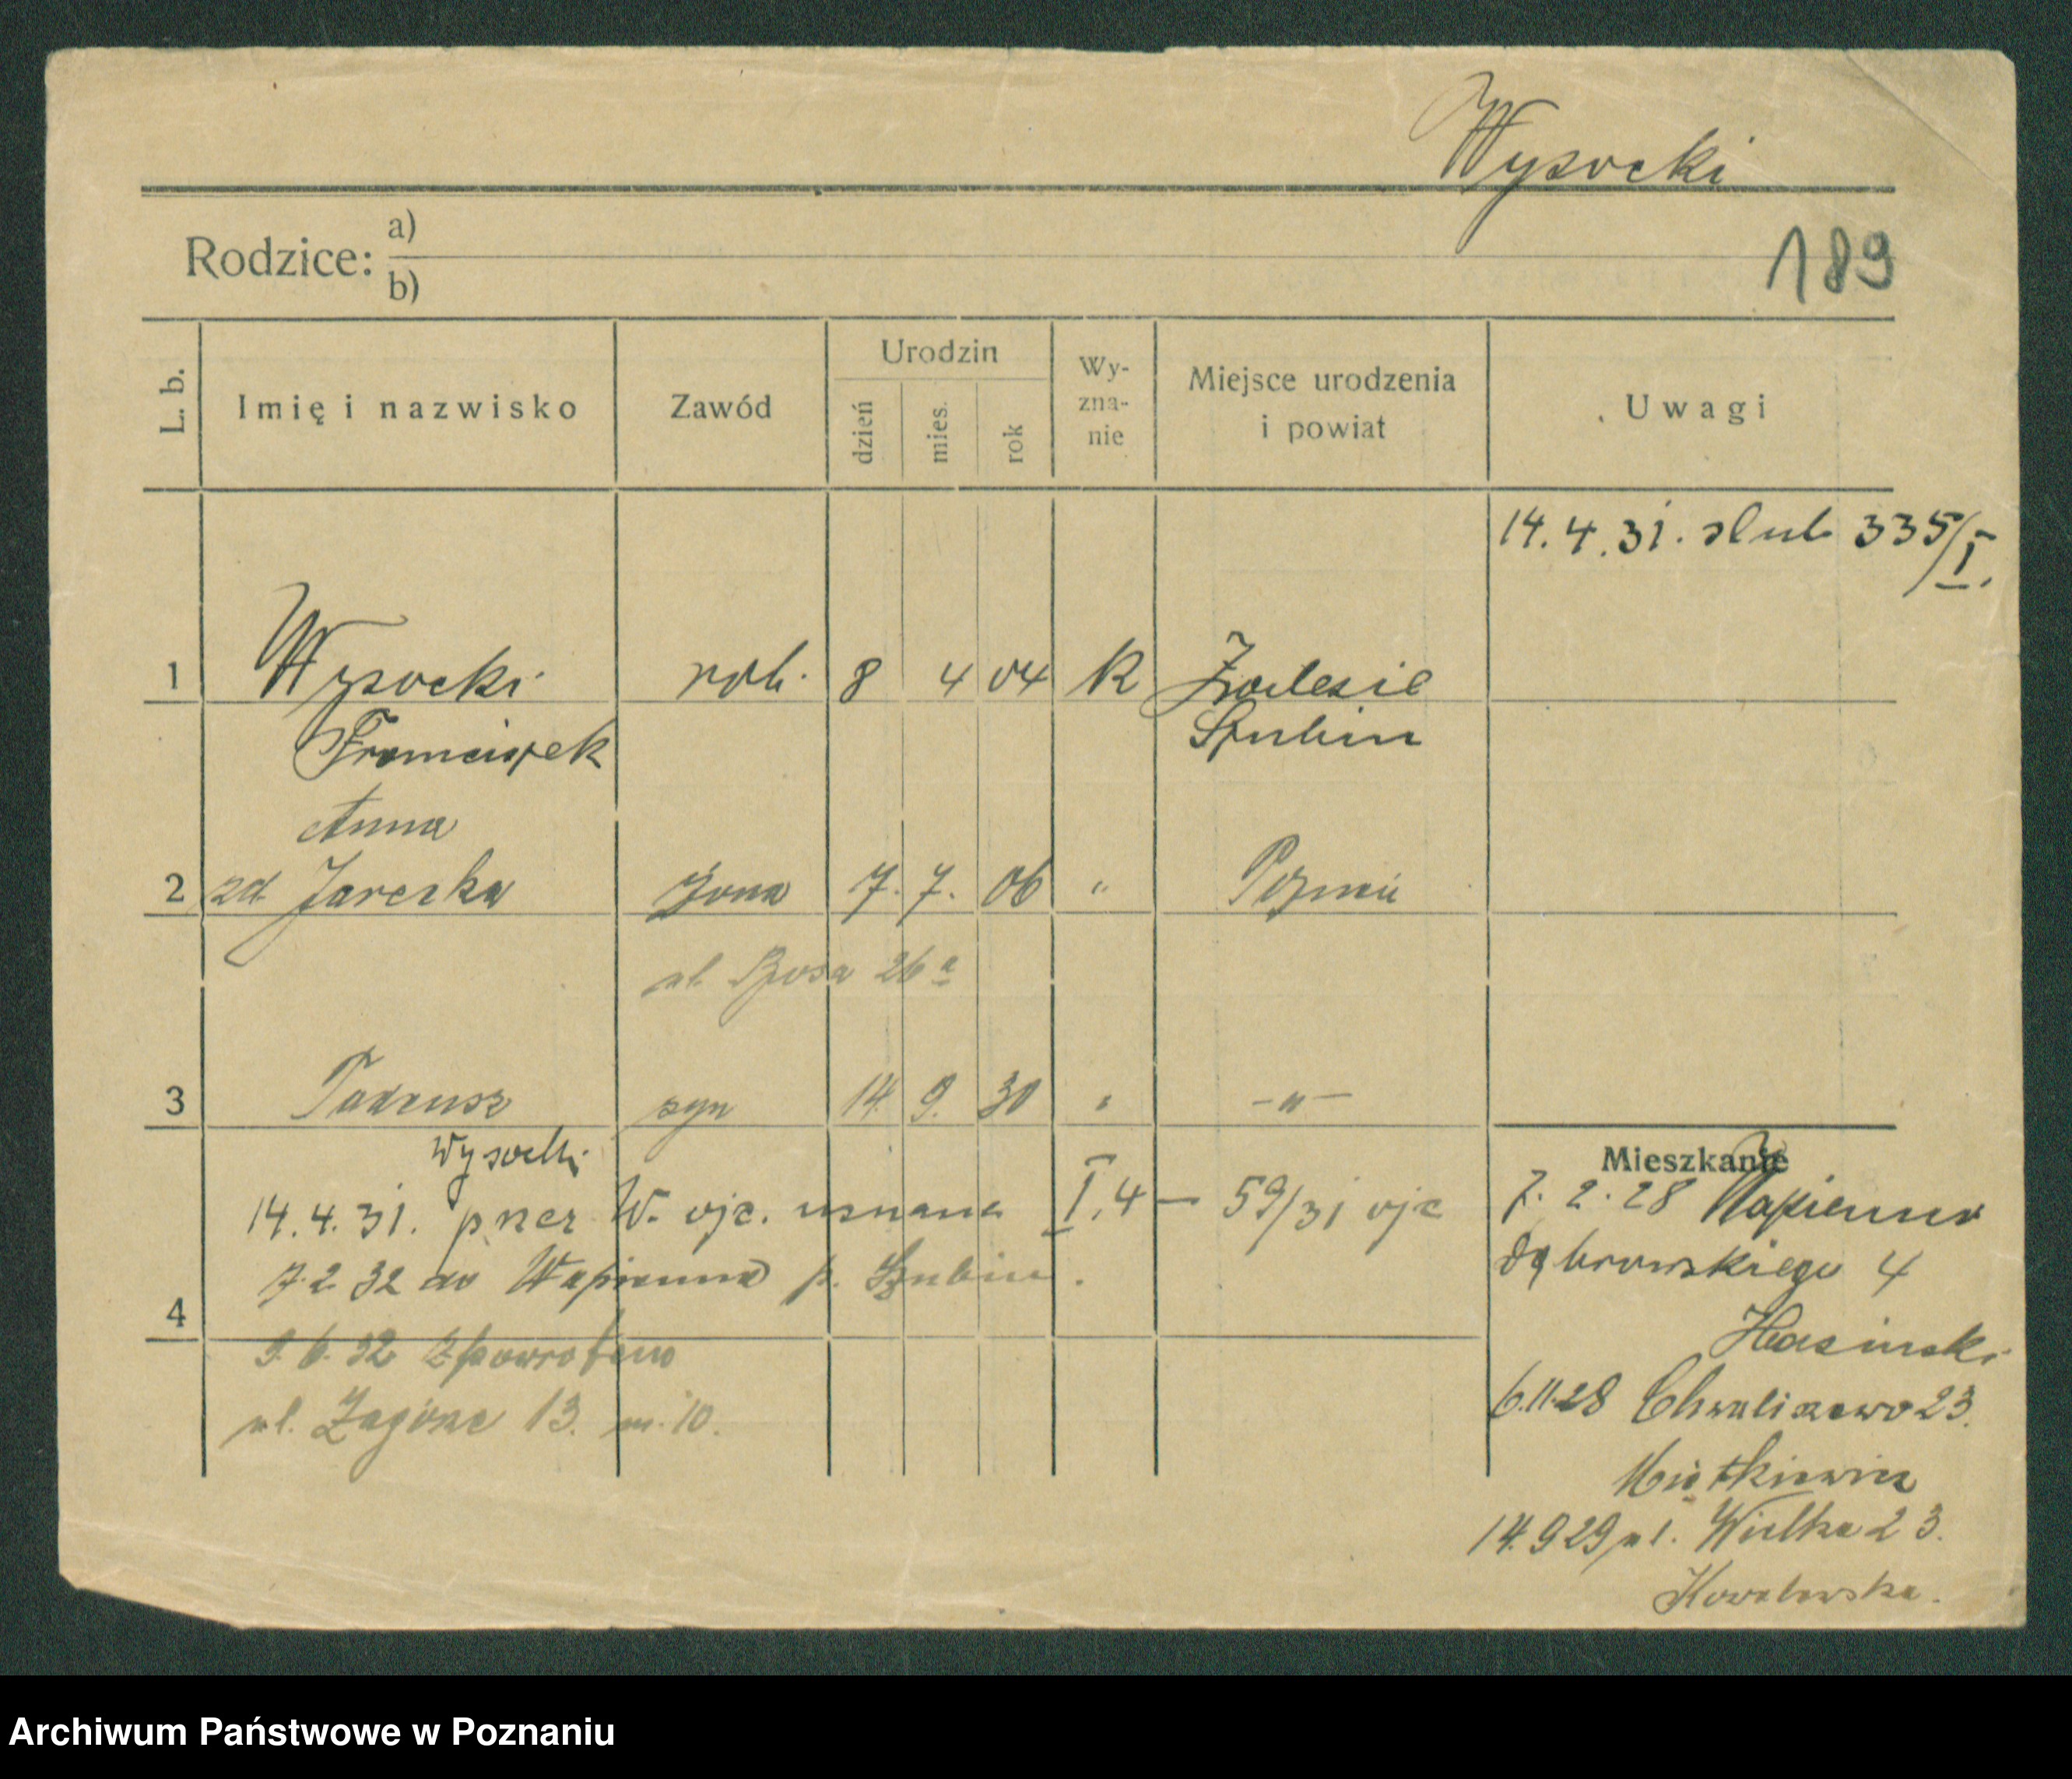 Wysocki
189
Rodzice: a)
b)
L. b. Imię i nazwisko Zawód Urodzin dzień mies. rok Wy-zna-nie Miejsce urodzenia i powiat Uwagi
14.4.31. slub 335/I.
1 Wysocki rob. 8 4 04 K Zalesie
Franciszek Szubin
Anna
2 zd. Jarecka żona 7. 7. 06 " Poznań
ul. 26a
3 Tadeusz syn 14. 9. 30 " -"-
Wysocki
Mieszkanie
14.4.31. przez W. ojc. uznane I.4 — 59/31 ojc
7.2.28 Wapienno
7.2 32 do Wapienna p. Szubin.
Dąbrowskiego 4
4
9.6.32 z powrotem
ul. Zagórze 13. m. 10.
6.11.28 Chwaliszewo 23.
14.9 29 ul. Wielka 23.
Kowalewska.
Archiwum Państwowe w Poznaniu